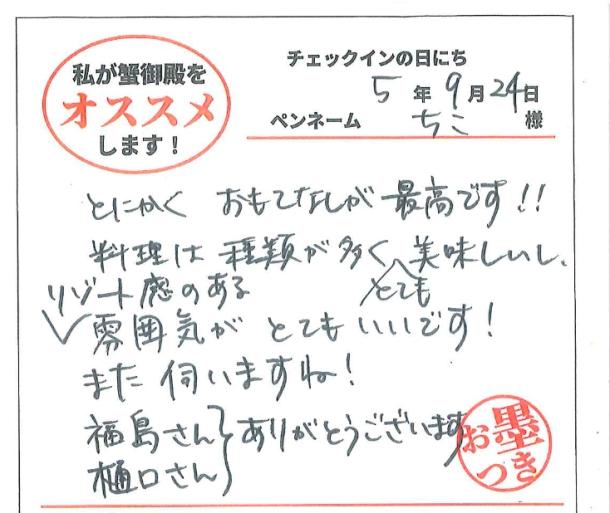 私が蟹御殿を
オススメ
します!
チェックインの日にち
5年9月24日
ペンネーム ちこ 様
とにかく おもてなしが 最高です!!
料理は 種類が多く、とても美味しいし、
リゾート感のある
雰囲気が とても いいです!
また 伺いますね!
福島さん
樋口さん
ありがとうございます
お墨つき